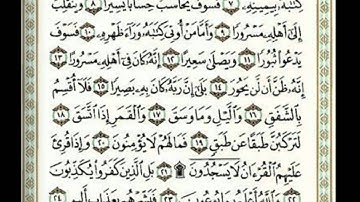 كِتَٰبَهُۥ بِيَمِينِهِۦ ٧ فَسَوْفَ يُحَاسَبُ حِسَابًا يَسِيرًا ٨ وَيَنقَلِبُ
إِلَىٰٓ أَهْلِهِۦ مَسْرُورًا ٩ وَأَمَّا مَنْ أُوتِيَ كِتَٰبَهُۥ وَرَآءَ ظَهْرِهِۦ ١٠ فَسَوْفَ
يَدْعُوا۟ ثُبُورًا ١١ وَيَصْلَىٰ سَعِيرًا ١٢ إِنَّهُۥ كَانَ فِيٓ أَهْلِهِۦ مَسْرُورًا ١٣
إِنَّهُۥ ظَنَّ أَن لَّن يَحُورَ ١٤ بَلَىٰٓ إِنَّ رَبَّهُۥ كَانَ بِهِۦ بَصِيرًا ١٥ فَلَآ أُقْسِمُ
بِٱلشَّفَقِ ١٦ وَٱلَّيْلِ وَمَا وَسَقَ ١٧ وَٱلْقَمَرِ إِذَا ٱتَّسَقَ ١٨
لَتَرْكَبُنَّ طَبَقًا عَن طَبَقٍ ١٩ فَمَا لَهُمْ لَا يُؤْمِنُونَ ٢٠ وَإِذَا قُرِئَ
عَلَيْهِمُ ٱلْقُرْءَانُ لَا يَسْجُدُونَ ۩ ٢١ بَلِ ٱلَّذِينَ كَفَرُوا۟ يُكَذِّبُونَ
٢٢ وَٱللَّهُ أَعْلَمُ بِمَا يُوعُونَ ٢٣ فَبَشِّرْهُم بِعَذَابٍ أَلِيمٍ ٢٤